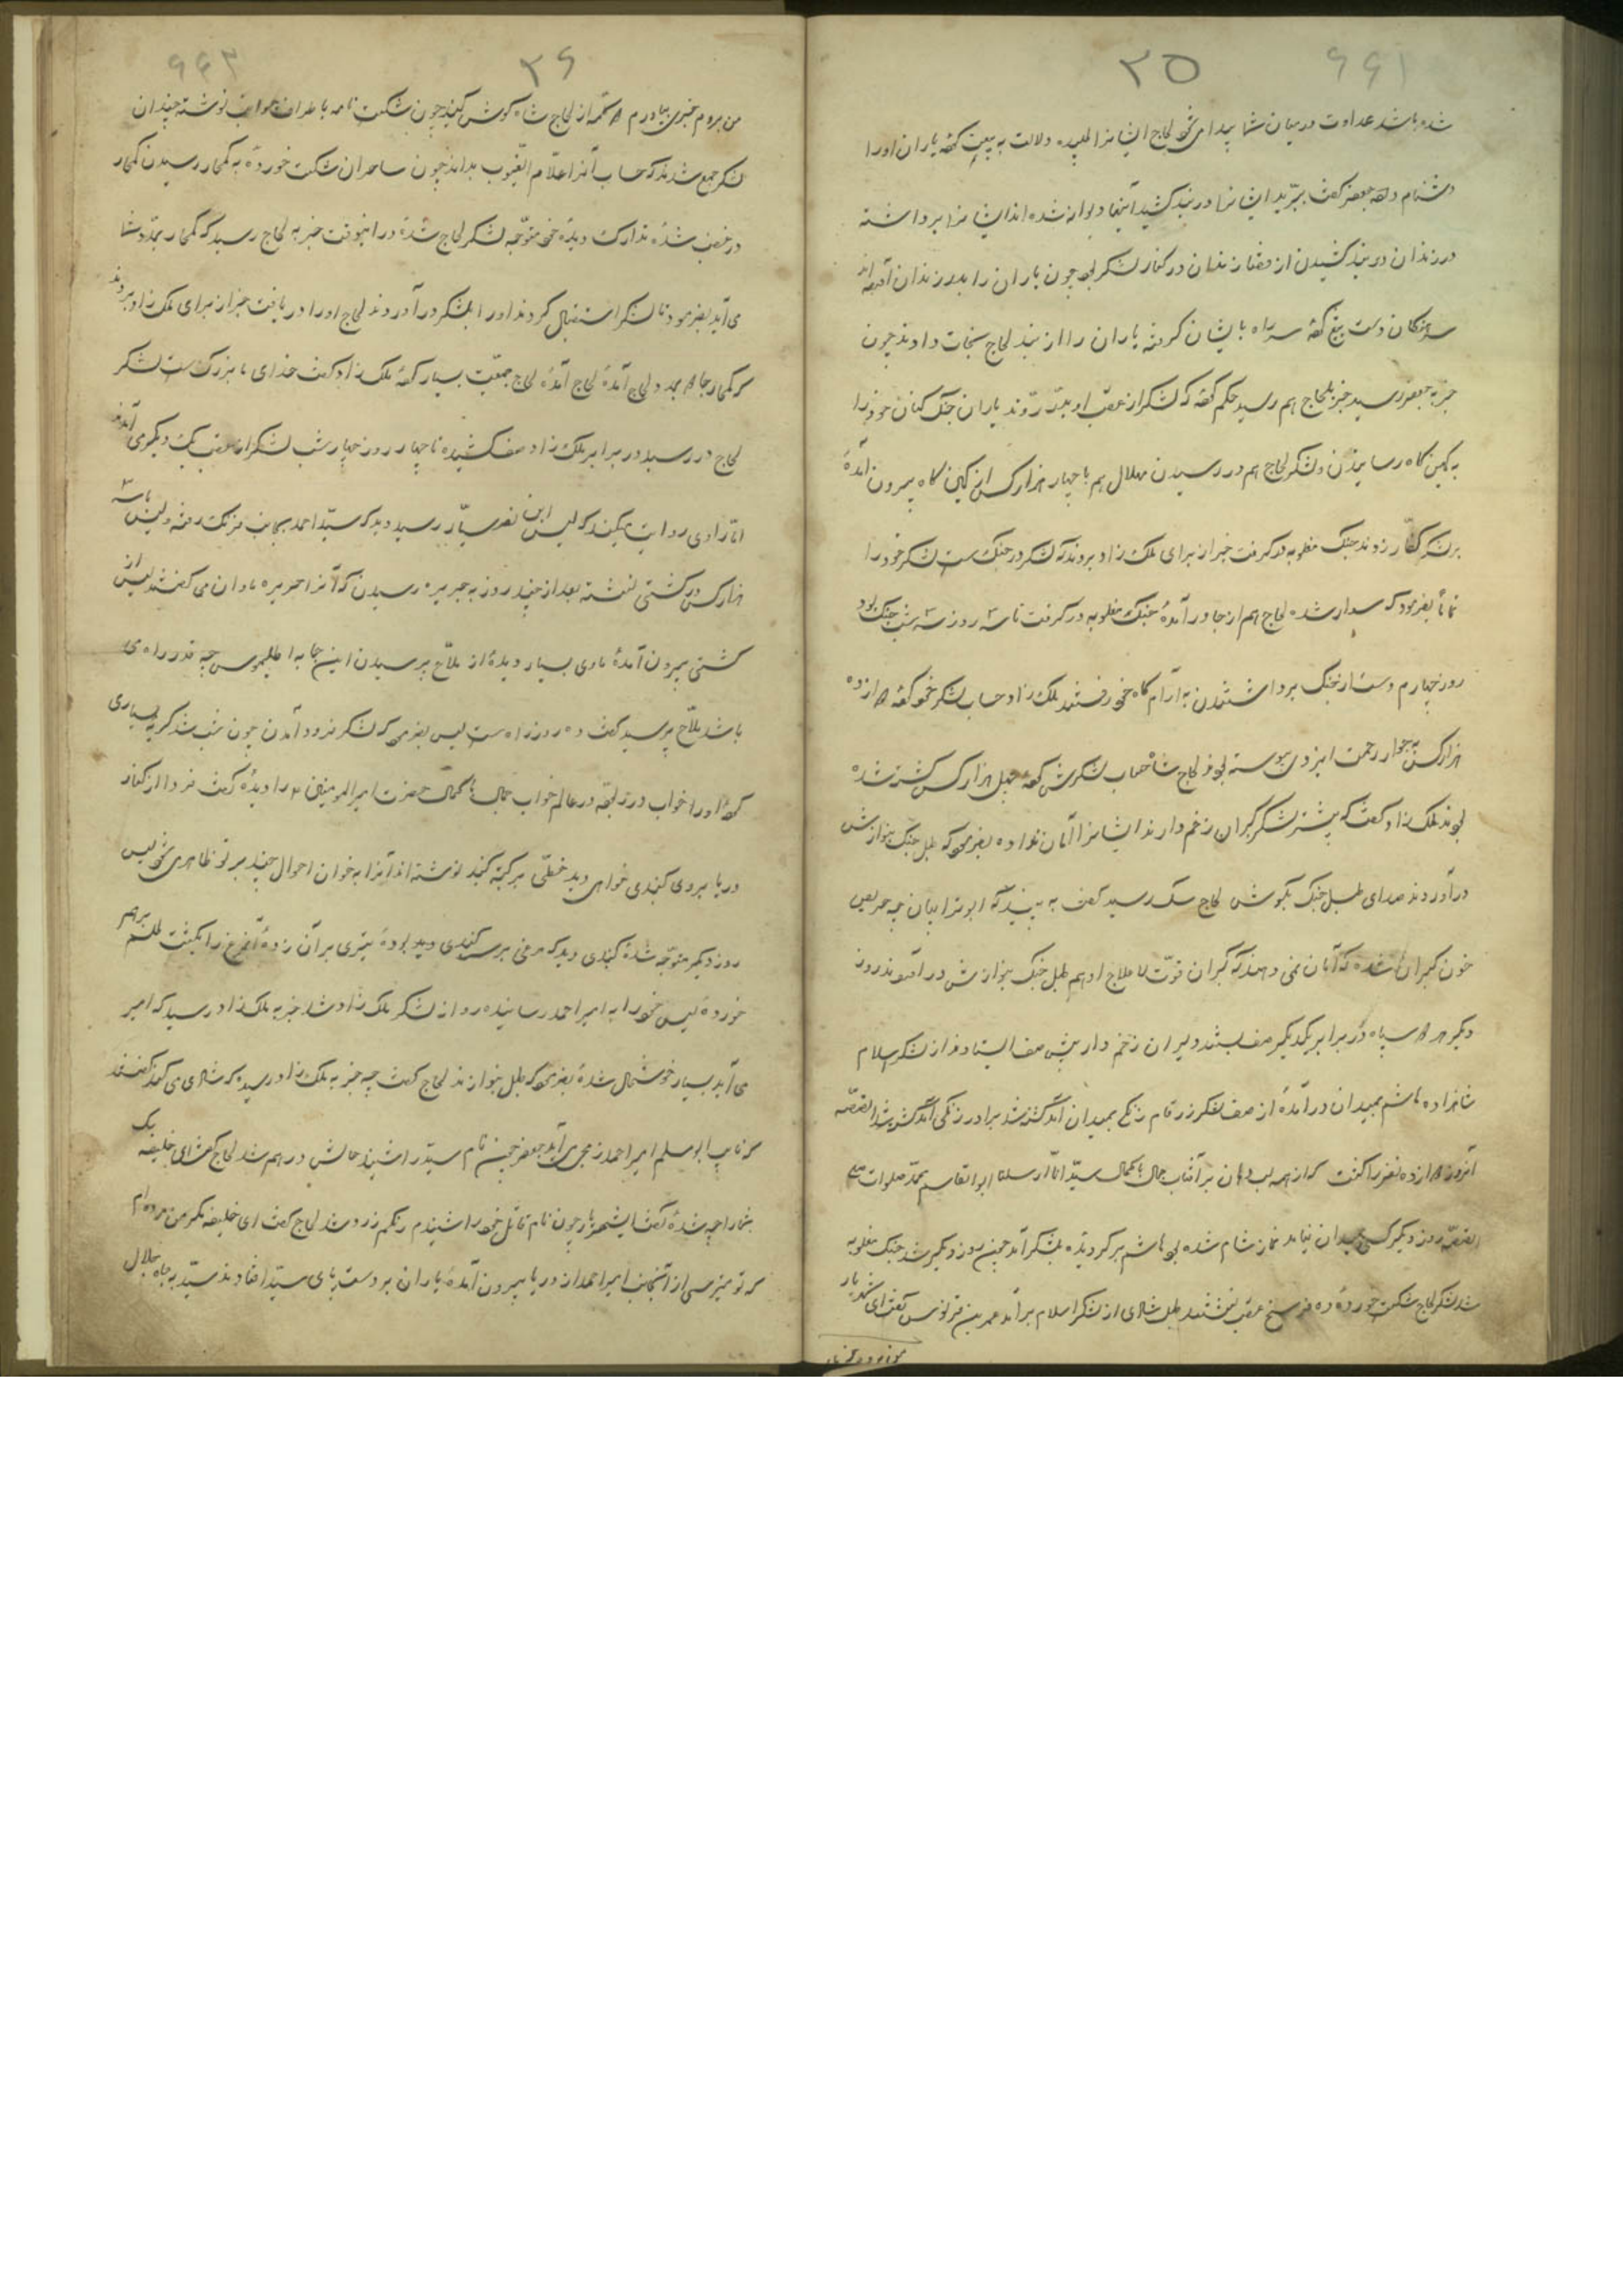 ۶۶۱
۳۵
شده باشد عداوت در میان شما پیدا می شود لجاج ایشانرا طلبیده دلالت به بیت کرده یاران او را
دشنام دادند جعفر گفت ببرید ایشانرا در بند کشید اینها دیوانه شده اند ایشانرا برداشته
در زندان در بند کشیدن از قضا زندان در کنار لشکر بود چون یاران را بدر زندان آورده اند
سرهنگان دست بتیغ کرده سر راه بایشان گرفته یاران را از بند لجاج نجات دادند چون
خبر به جعفر رسید خبر بلجاج هم رسید حکم کرد که لشکر از عقب او بدر روند یاران جنگ کنان خود را
به کمین گاه رسانیدن و لشکر لجاج هم در رسیدن هلال هم با چهار هزار کس از کمین گاه بیرون آمده
بر لشکر کفار زدند جنگ مغلوبه در گرفت خبر از برای ملک زاد بردند که لشکر در جنگ است لشکر خود را
تماماً بفرمود که سوار شده لجاج هم از جا درآمده جنگ مغلوبه در گرفت تا سه روز سه شب جنگ بود
روز چهارم دست از جنگ برداشتند به آرام گاه خود رفتند ملک زاد حساب لشکر خود کرد دوازده
هزار کس به جوار رحمت ایزدی پیوسته بود لجاج شاه حساب لشکرش کرد چهل هزار کس کشته شده
بودند ملک زاد گفت که بیشتر لشکر گبران زخم دارند ایشانرا امان نداده بفرمود که طبل جنگ بنوازش
درآوردند صدای طبل جنگ بگوش لجاج سگ رسید گفت به بینید که ابوترابیان چه حریص
خون گبران شده که امان نمی دهند که گبران قوت لاعلاج او هم طبل جنگ بنوازش درآوردند روز
دیگر هر دو سپاه در برابر یکدیگر صف بستند دلیران زخم دار پیش صف ایستادند از لشکر اسلام
شاهزاده هاشم بمیدان درآمده از صف لشکر زرقام زنگی بمیدان آمد کشته شد برادر زنگی آمد کشته شد القصه
آنروز دوازده نفر را کشت که از همه لب و دهان بر آفتاب جمال با کمال سید انا ارسلنا ابوالقاسم محمد صلوات
القصه روز دیگر کسی بمیدان نیامد نماز شام شده بود هاشم برگردیده بلشکر آمد چون روز دیگر شد جنگ مغلوبه
شد لشکر لجاج شکست خورده ده فرسخ عقب نشستند طبل شادی از لشکر اسلام برآمد عمر بن قرنوس گفت ای شهریار
۶۶۳
۳۶
من بروم خبری بیاورم از لجاج شاه گوش کنید چون شکست نامه باطراف جوانب نوشته چندان
لشکر جمع شدند که حساب آنرا علام الغیوب بداند چون ساحران شکست خورده به گمحار رسیدن گمحار
در غضب شده تدارک دیده خود متوجه لشکر لجاج شده در اینوقت خبر به لجاج رسید که گمحار بمدد شما
می آید بفرمود تا لشکر استقبال کردند او را بلشکر درآوردند لجاج او را دریافت خبر از برای ملک زاد بردند
که گمحار جادو بمدد لجاج آمده لجاج آمده لجاج جمعیت بسیار کرده ملک زاد گفت خدای ما بزرگ است لشکر
لجاج در رسید در برابر ملک زاد صف کشیده تا چهار روز چهار شب لشکر از عقب یک دیگر می آمدند
اما راوی روایت میکند که لیس ابن نصر سیار رسید دید که سید احمد بجانب فرنگ رفته و لیس با سه
هزار کس در کشتی نشسته بعد از چند روز به جزیره رسیدن که آنرا جزیره نادان می گفتند لیس از
کشتی بیرون آمده وادی بسیار دیده از ملاح پرسیدن این جا به اطلیموس چه قدر راه می
باشد ملاح پرسید گفت ده روز راه است لیس بفرمود که لشکر فرود آمدن چون شب شد گریه بسیاری
کرده او را خواب در ربود در عالم خواب جمال با کمال حضرت امیرالمومنین را دیده گفت فردا از کنار
دریا بروی گنبدی خواهی دید خطی بر کتبه گنبد نوشته اند آنرا بخوان احوال چند بر تو ظاهر می شود لیس
روز دیگر متوجه شده گنبدی دید که مرغی بر سر گنبدی دید بوده تیری بر آن زده آن مرغ را بکشت طلسم برهم
خورده لیس خود را به امیر احمد رسانیده رو از لشکر ملک زاد شد خبر به ملک زاد رسید که امیر
می آید بسیار خوشحال شده بفرمود که طبل بنوازند لجاج گفت چه خبر به ملک زاد رسیده که شادی می کند گفتند
که نایب ابومسلم امیر احمد زمجی می آید جعفر چون نام سید را شنید حالش درهم شد لجاج گفت ای خلیفه یک
شما را چه شده گفت ای شهریار چون نام قاتل خود را شنیدم رنگم زرد شد لجاج گفت ای خلیفه مگر من مرده ام
که تو میترسی از آنجانب امیر احمد از دریا بیرون آمده یاران بر دست پای سید افتادند سید به جاه جلال